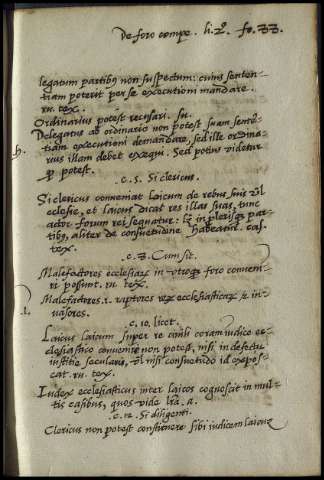 De foro compe. li. 2. fo. 33.
legatum partibus non suspectum: cuius senten-
tiam poterit per se executioni mandare.
ru. tex.
Ordinarius potest recusari. su.
Delegatus ab ordinario non potest suam senten-
h. tiam executioni demandare, sed ille ordina-
rius illam debet exequi. Sed potius videtur
potest.
.c. 5. Si clericus.
Si clericus conveniat laicum de rebus suis vel
eclesie, et laicus dicat res illas suas, tunc
actor forum rei sequatur: in plerisque par-
tibus, aliter de consuetudine habeatur. cas.
tex.
.c. 8. Cum sit.
Malefactores ecclesiarum in utroque foro conveni-
ri possunt. ru. tex.
i. Malefactores .i. raptores rerum ecclesiasticarum et in-
vasores.
.c. 10. licet.
Laicus laicum super re civili coram iudice ec-
clesiastico convenire non potest, nisi in defectu
iustitie secularis, vel nisi consuetudo id expos-
cat. ru. tex.
Iudex ecclesiasticus inter laicos cognoscit in mul-
tis casibus, quos vide a.
.c. 12. Si diligenti.
Clericus non potest constituere sibi iudicem laicum